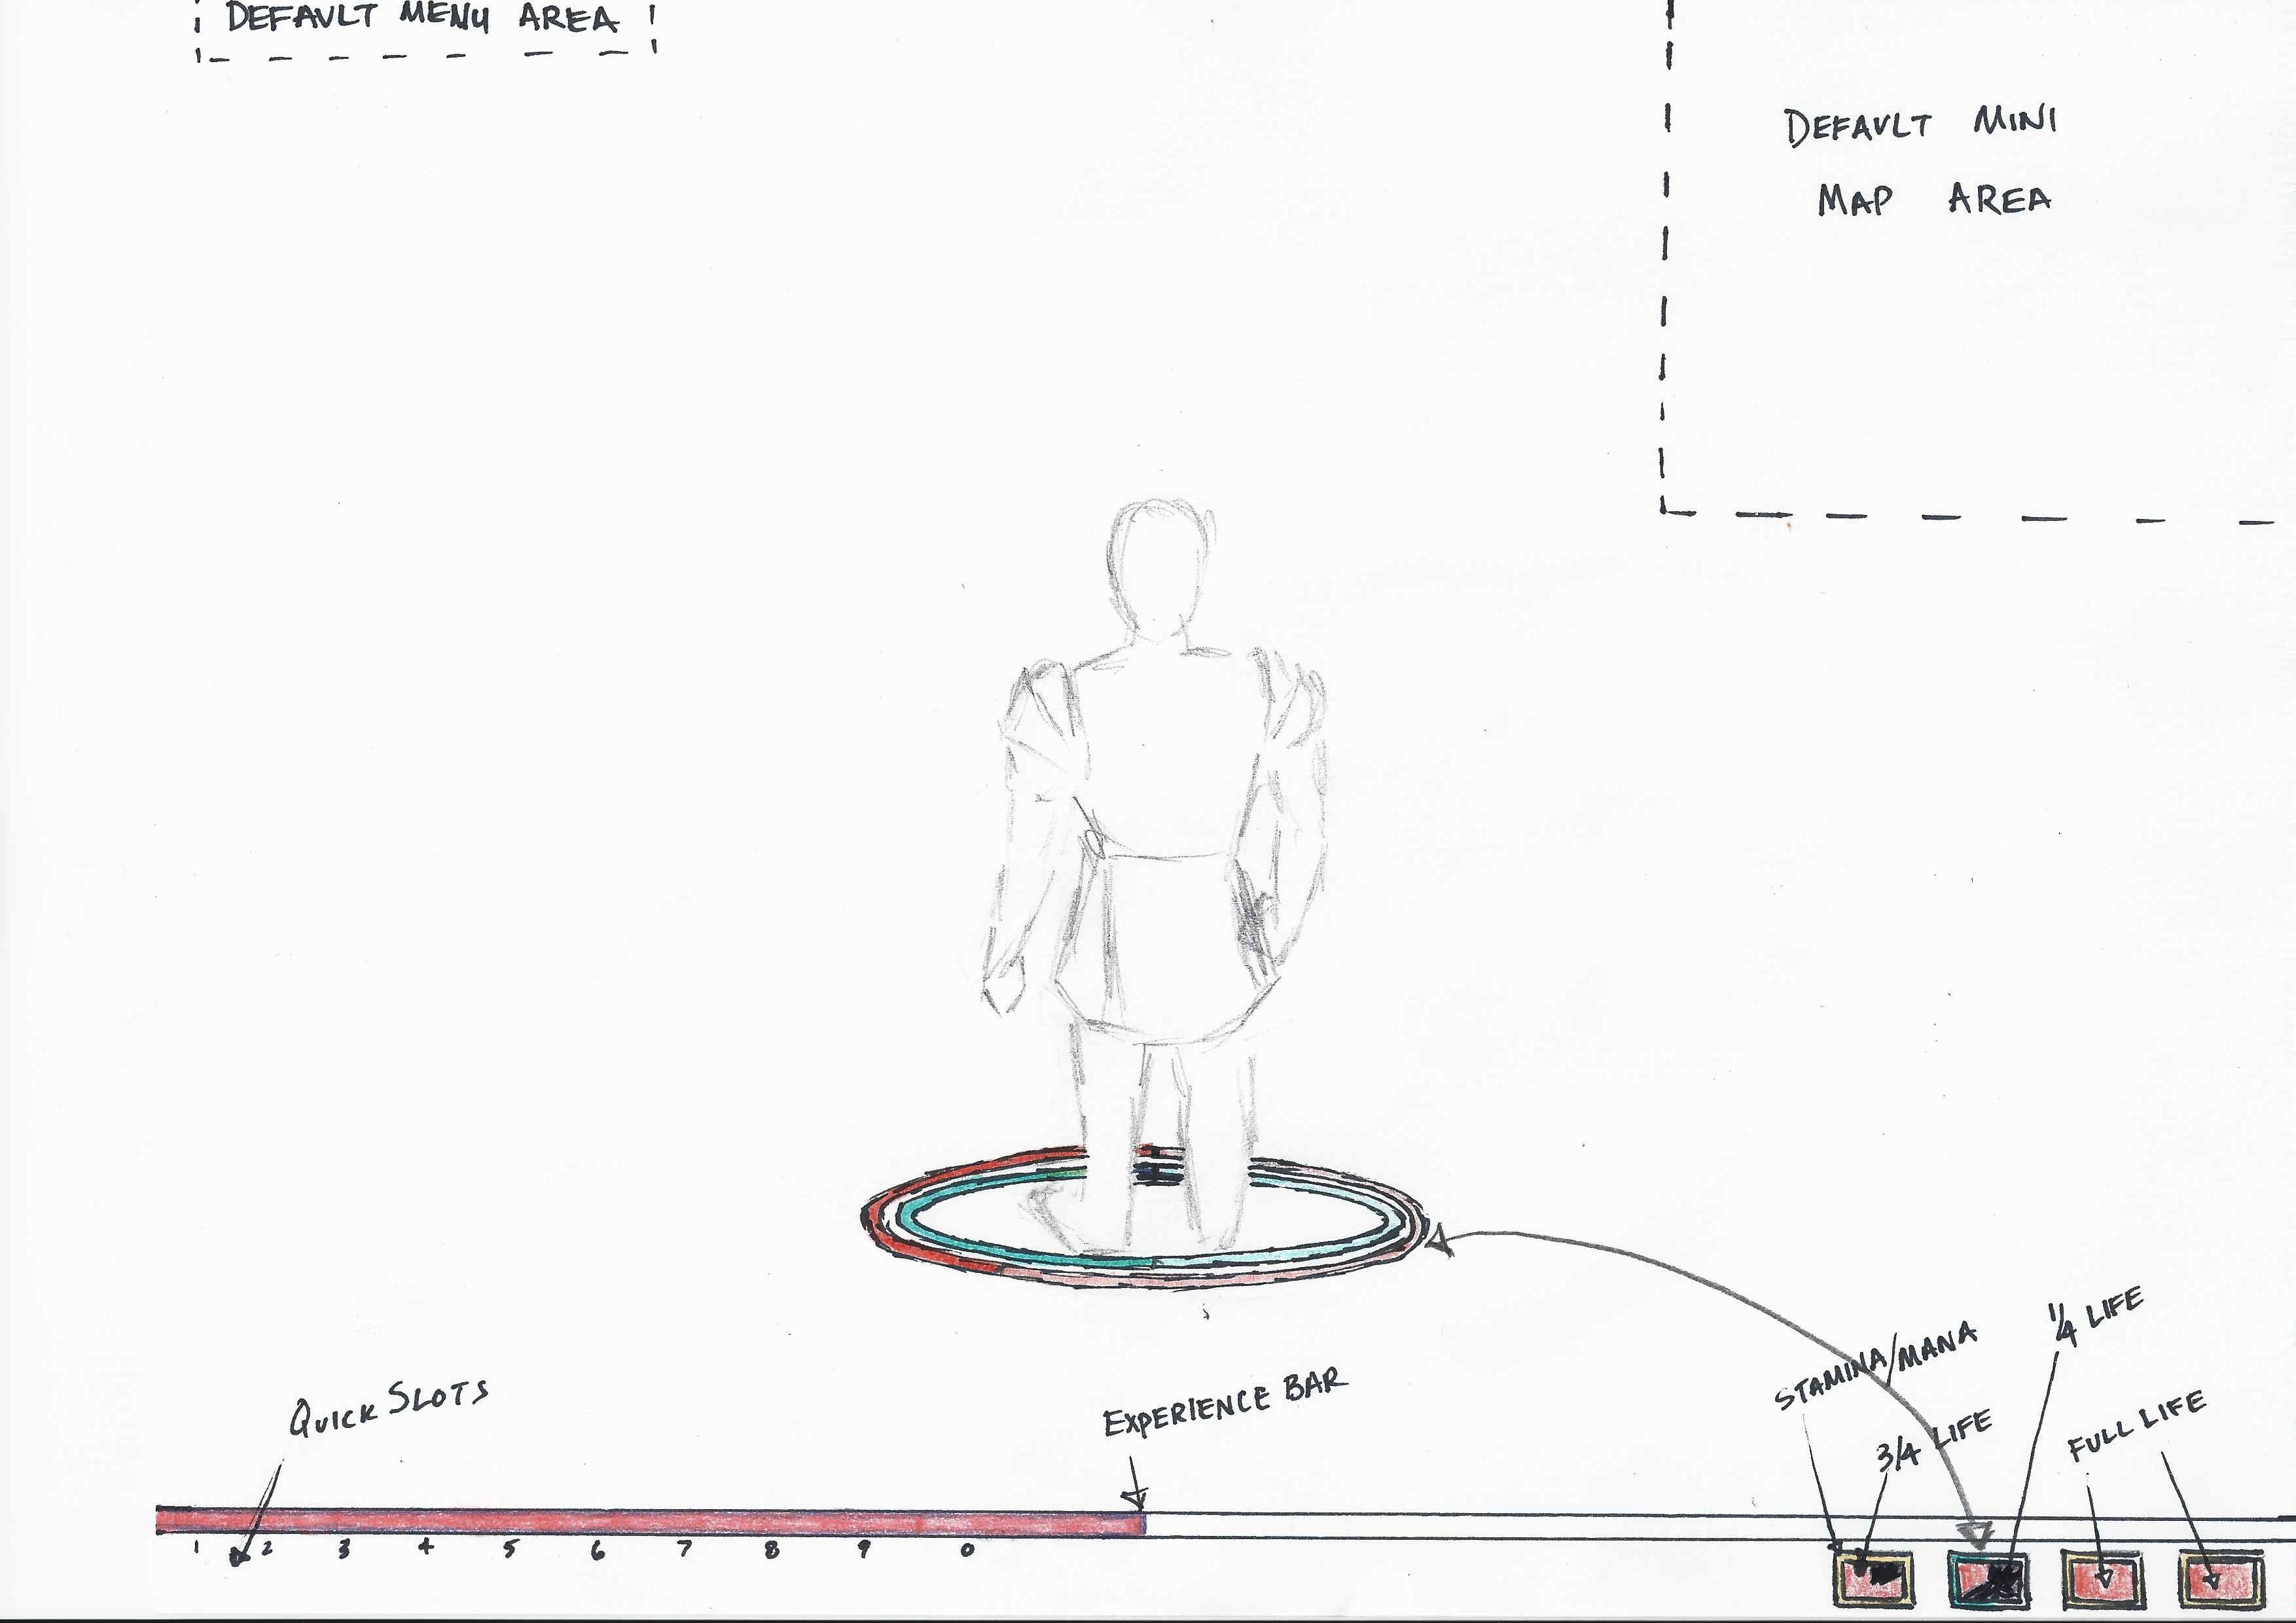 DEFAULT MENU AREA
DEFAULT MINI
MAP AREA
QUICK SLOTS
EXPERIENCE BAR
STAMINA/MANA
1/4 LIFE
3/4 LIFE
FULL LIFE
1 2 3 4 5 6 7 8 9 0